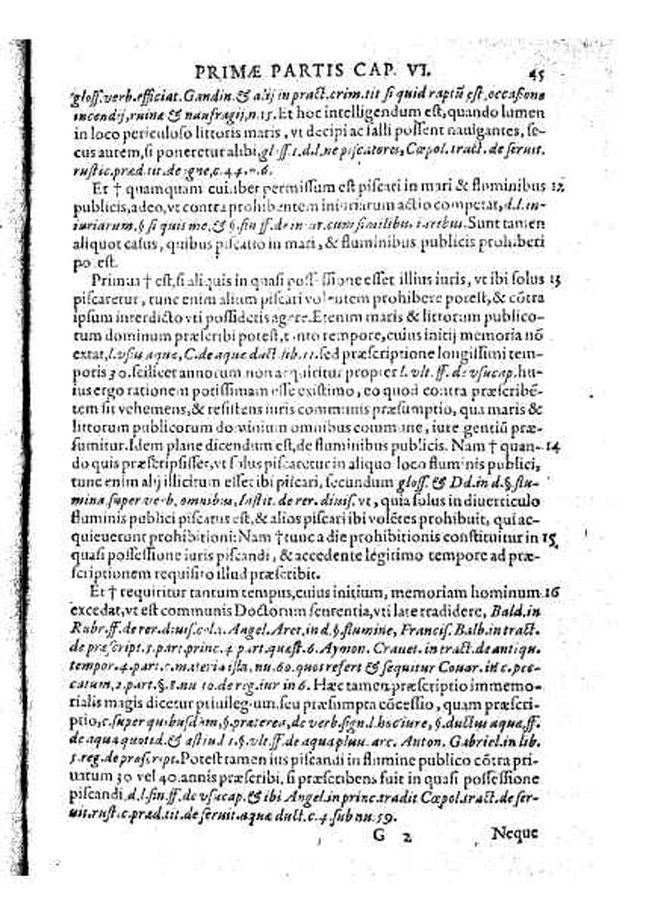 PRIMÆ PARTIS CAP. VI. 45
gloss. verb. efficiat. Gandin. & alij in pract. crim. tit. si quid raptũ est, occasione
incendij, ruinæ & naufragij, n. 15. Et hoc intelligendum est, quando lumen
in loco periculoso littoris maris, vt decipi ac falli possent nauigantes, se-
cus autem, si poneretur alibi, gloss. 1. d. l. ne piscatores, Cœpol. tract. de seruit.
rustic. præd. tit. de igne, c. 44. n. 6.
Et † quamquam cuiliber permissum est piscari in mari & fluminibus 12
publicis, adeo, vt contra prohibentem iniuriarum actio competat, d. l. in-
iuriarum, § si quis me, & §. fin ff. de iniur. cum similibus Sunt tamen
aliquot casus, quibus piscatio in mari, & fluminibus publicis prohiberi
potest.
Primus † est, si aliquis in quasi possessione esset illius iuris, vt ibi solus 13
piscaretur, tunc enim alium piscari volentem prohibere potest, & cõtra
ipsum interdicto vti possidetis agere. Etenim maris & littorum publico-
rum dominum præscribi potest, tanto tempore, cuius initij memoria nõ
extat, l. vsus aquæ, C. de aquæ duct. lib. 11. sed præscriptione longissimi tem-
poris 30. scilicet annorum non acquiritur propter l. vlt. ff. de vsucap. hu-
ius ergo rationem potissimam esse existimo, eo quod contra præscribẽ-
tem sit vehemens, & resistens iuris communis præsumptio, qua maris &
littorum publicorum dominium omnibus commune, iure gentiũ præ-
sumitur. Idem plane dicendum est, de fluminibus publicis. Nam † quan- 14
do quis præscripsisset, vt solus piscaretur in aliquo loco fluminis publici,
tunc enim alij illicitum esset ibi piscari, secundum gloss. & Dd. in d. §. flu-
mina super verb. omnibus, Instit. de rer. diuis. vt, quia solus in diuerticulo
fluminis publici piscatus est, & alios piscari ibi volẽtes prohibuit, qui ac-
quieuerunt prohibitioni: Nam † tunc a die prohibitionis constituitur in 15
quasi possessione iuris piscandi, & accedente legitimo tempore ad præ-
scriptionem requisito illud præscribit.
Et † requiritur tantum tempus, cuius initium, memoriam hominum 16
excedat, vt est communis Doctorum sententia, vti late tradidere, Bald. in
Rubr. ff. de rer. diuis. col. 2. Angel. Aret. in d. §. flumine, Francis. Balb. in tract.
de præscript. 5. part. princ. 4 part. quæst. 6. Aymon. Crauet. in tract. de antiqu.
tempor. 4. part. c. materia ista, nu. 60. quos refert & sequitur Couar. in c. pec-
catum, 2. part. §. 8. nu 10. de reg. iur in 6. Hæc tamen præscriptio immemo-
rialis magis dicetur priuilegium, seu præsumpta cõcessio, quam præscri-
ptio, c. super quibusdam, §. præterea, de verb. sign. l. hoc iure, §. ductus aquæ, ff.
de aqua quotid. & æstiu l 1. §. vlt. ff. de aqua pluu. arc. Anton. Gabriel. in lib.
5. reg. de præscript. Potest tamen ius piscandi in flumine publico cõtra pri-
uatum 30 vel 40. annis præscribi, si præscribens fuit in quasi possessione
piscandi, d. l. fin. ff. de vsucap. & ibi Angel. in princ. tradit Cœpol. tract. de ser-
uit. rust. c. præd. tit. de seruit. aquæ duct. c. 4. sub nu. 59.
G 2 Neque